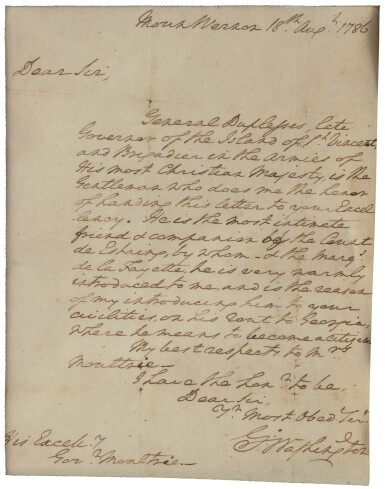 Mount Vernon 18th Augt. 1786
Dear Sir,
General Duplessis, late
Governor of the Island of St. Vincent,
and Brigadier in the Armies of
His most Christian Majesty, is the
Gentleman who does me the honor
of handing this letter to your Excel
lency. He is the most intimate
friend & companion of the Count
de Estaing, by whom & the Marqs.
de la Fayette, he is very warmly
introduced to me, and is the reason
of my introducing him to your
civilities, on his rout to Georgia,
where he means to become a citizen
My best respects to Mrs.
Moultrie—
I have the honr. to be—
Dear Sir
Yr. Most Obedt. Servt.
G: Washington
His Excely.
Govr. Moultrie—